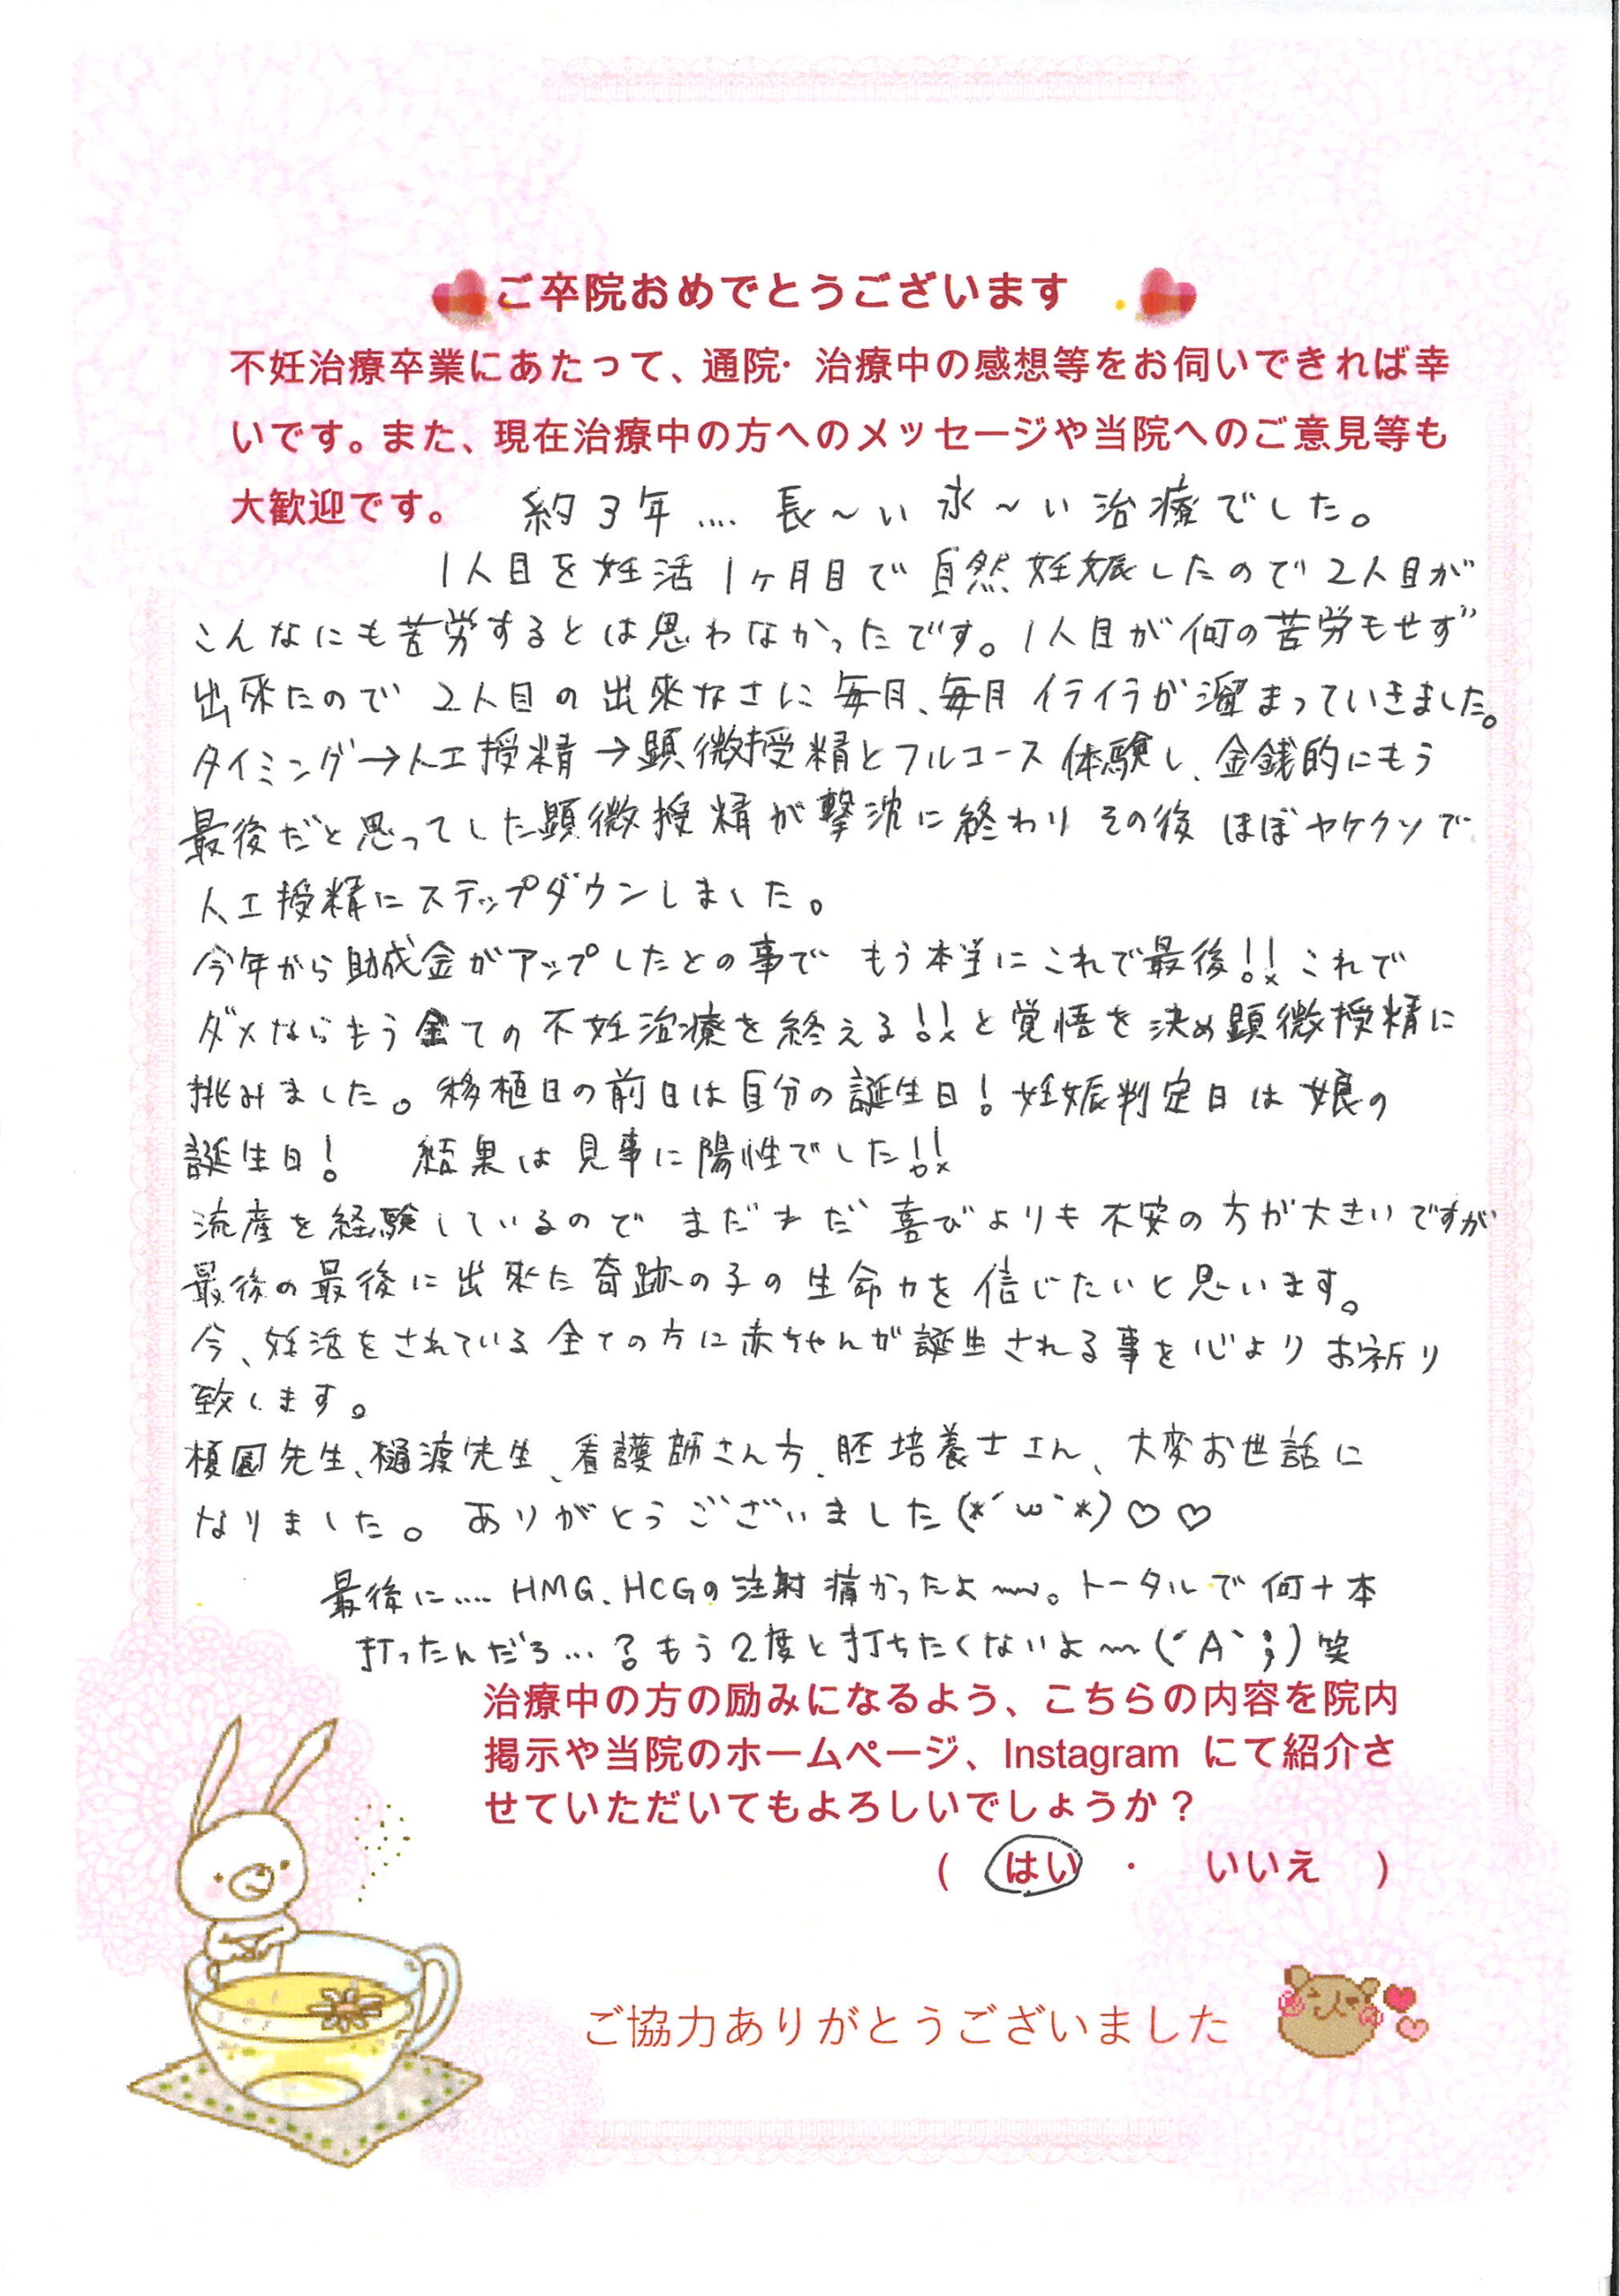 ご卒院おめでとうございます
不妊治療卒業にあたって、通院・治療中の感想等をお伺いできれば幸
いです。また、現在治療中の方へのメッセージや当院へのご意見等も
大歓迎です。 約3年.... 長〜い永〜い治療でした。
1人目を妊活1ヶ月目で自然妊娠したので2人目が
こんなにも苦労するとは思わなかったです。1人目が何の苦労もせず
出来たので2人目の出来なさに毎月、毎月イライラが溜まっていきました。
タイミング→人工授精→顕微授精とフルコース体験し、金銭的にもう
最後だと思ってした顕微授精が撃沈に終わりその後ほぼヤケクソで
人工授精にステップダウンしました。
今年から助成金がアップしたとの事でもう本当にこれで最後!!これで
ダメならもう全ての不妊治療を終える!!と覚悟を決め顕微授精に
挑みました。移植日の前日は自分の誕生日!妊娠判定日は娘の
誕生日! 結果は見事に陽性でした!!
流産を経験しているのでまだまだ喜びよりも不安の方が大きいですが
最後の最後に出来た奇跡の子の生命力を信じたいと思います。
今、妊活をされている全ての方に赤ちゃんが誕生される事を心よりお祈り
致します。
榎園先生、樋渡先生、看護師さん方、胚培養士さん、大変お世話に
なりました。ありがとうございました(*´ω`*)♡♡
最後に.... HMG、HCGの注射痛かったよ〜〜。トータルで何十本
打ったんだろ...?もう2度と打ちたくないよ〜〜(´A`;)笑
治療中の方の励みになるよう、こちらの内容を院内
掲示や当院のホームページ、Instagram にて紹介さ
せていただいてもよろしいでしょうか？
( はい ・ いいえ )
ご協力ありがとうございました